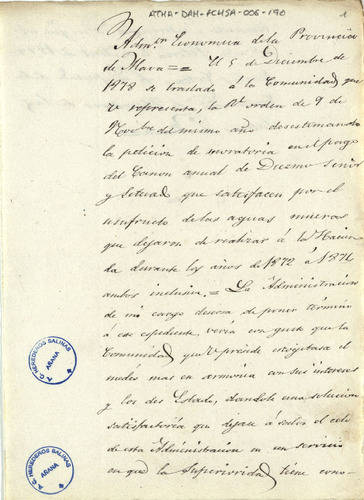 ATHA-DAH-FCHSA-006-190
1
Adm.on Economica de la Provincia
de Alava == El 5 de Diciembre de
1878 se traslado á la Comunidad que
V. representa, la Rl. orden de 9 de
Nov.bre del mismo año desestimando
la peticion de moratoria en el pago
del Canon anual de Diezmo Señor
y Setead que satisfacen por el
usufructo de las aguas mueras
que dejaron de realizar á la Hacien
da durante los años de 1872 á 1874
ambos inclusive. = La Administracion
de mi cargo deseosa de poner término
á este espediente, veria con gusto que la
Comunidad que V. preside escogitase el
medio mas en armonia con sus intereses
y los del Estado, dandole una solucion
satisfactoria que dejase á salvo el celo
de esta Administracion en un servicio
en que la Superioridad tiene cono-
A. C. HEREDEROS SALINAS
AÑANA
A. C. HEREDEROS SALINAS
AÑANA